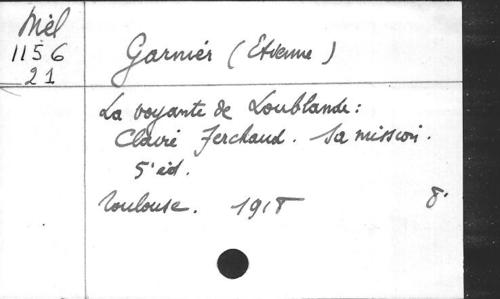 Mél
1156
21
Garnier (Etienne)
La voyante de Loublande:
Claire Ferchaud. Sa mission.
5ᵉ éd.
Toulouse. 1918 8°